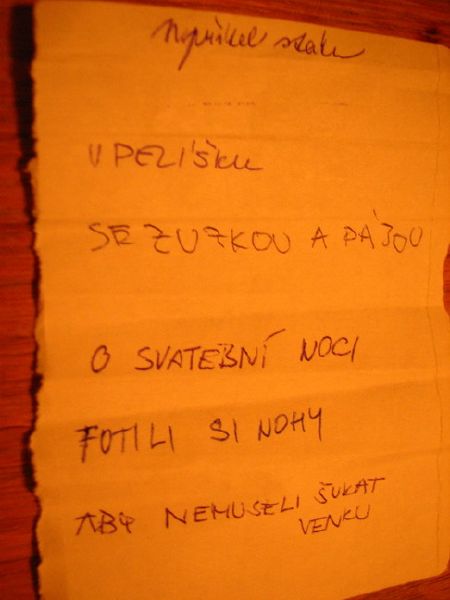 V PELÍŠKU
SE ZUZKOU A PÁJOU
O SVATEBNÍ NOCI
FOTILI SI NOHY
ABY NEMUSELI ŠUKAT
VENKU